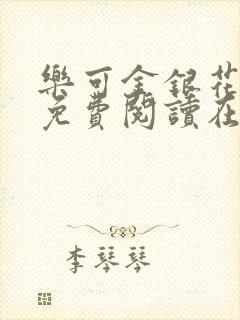 樂可金銀花
免費閱讀在
李琴琴